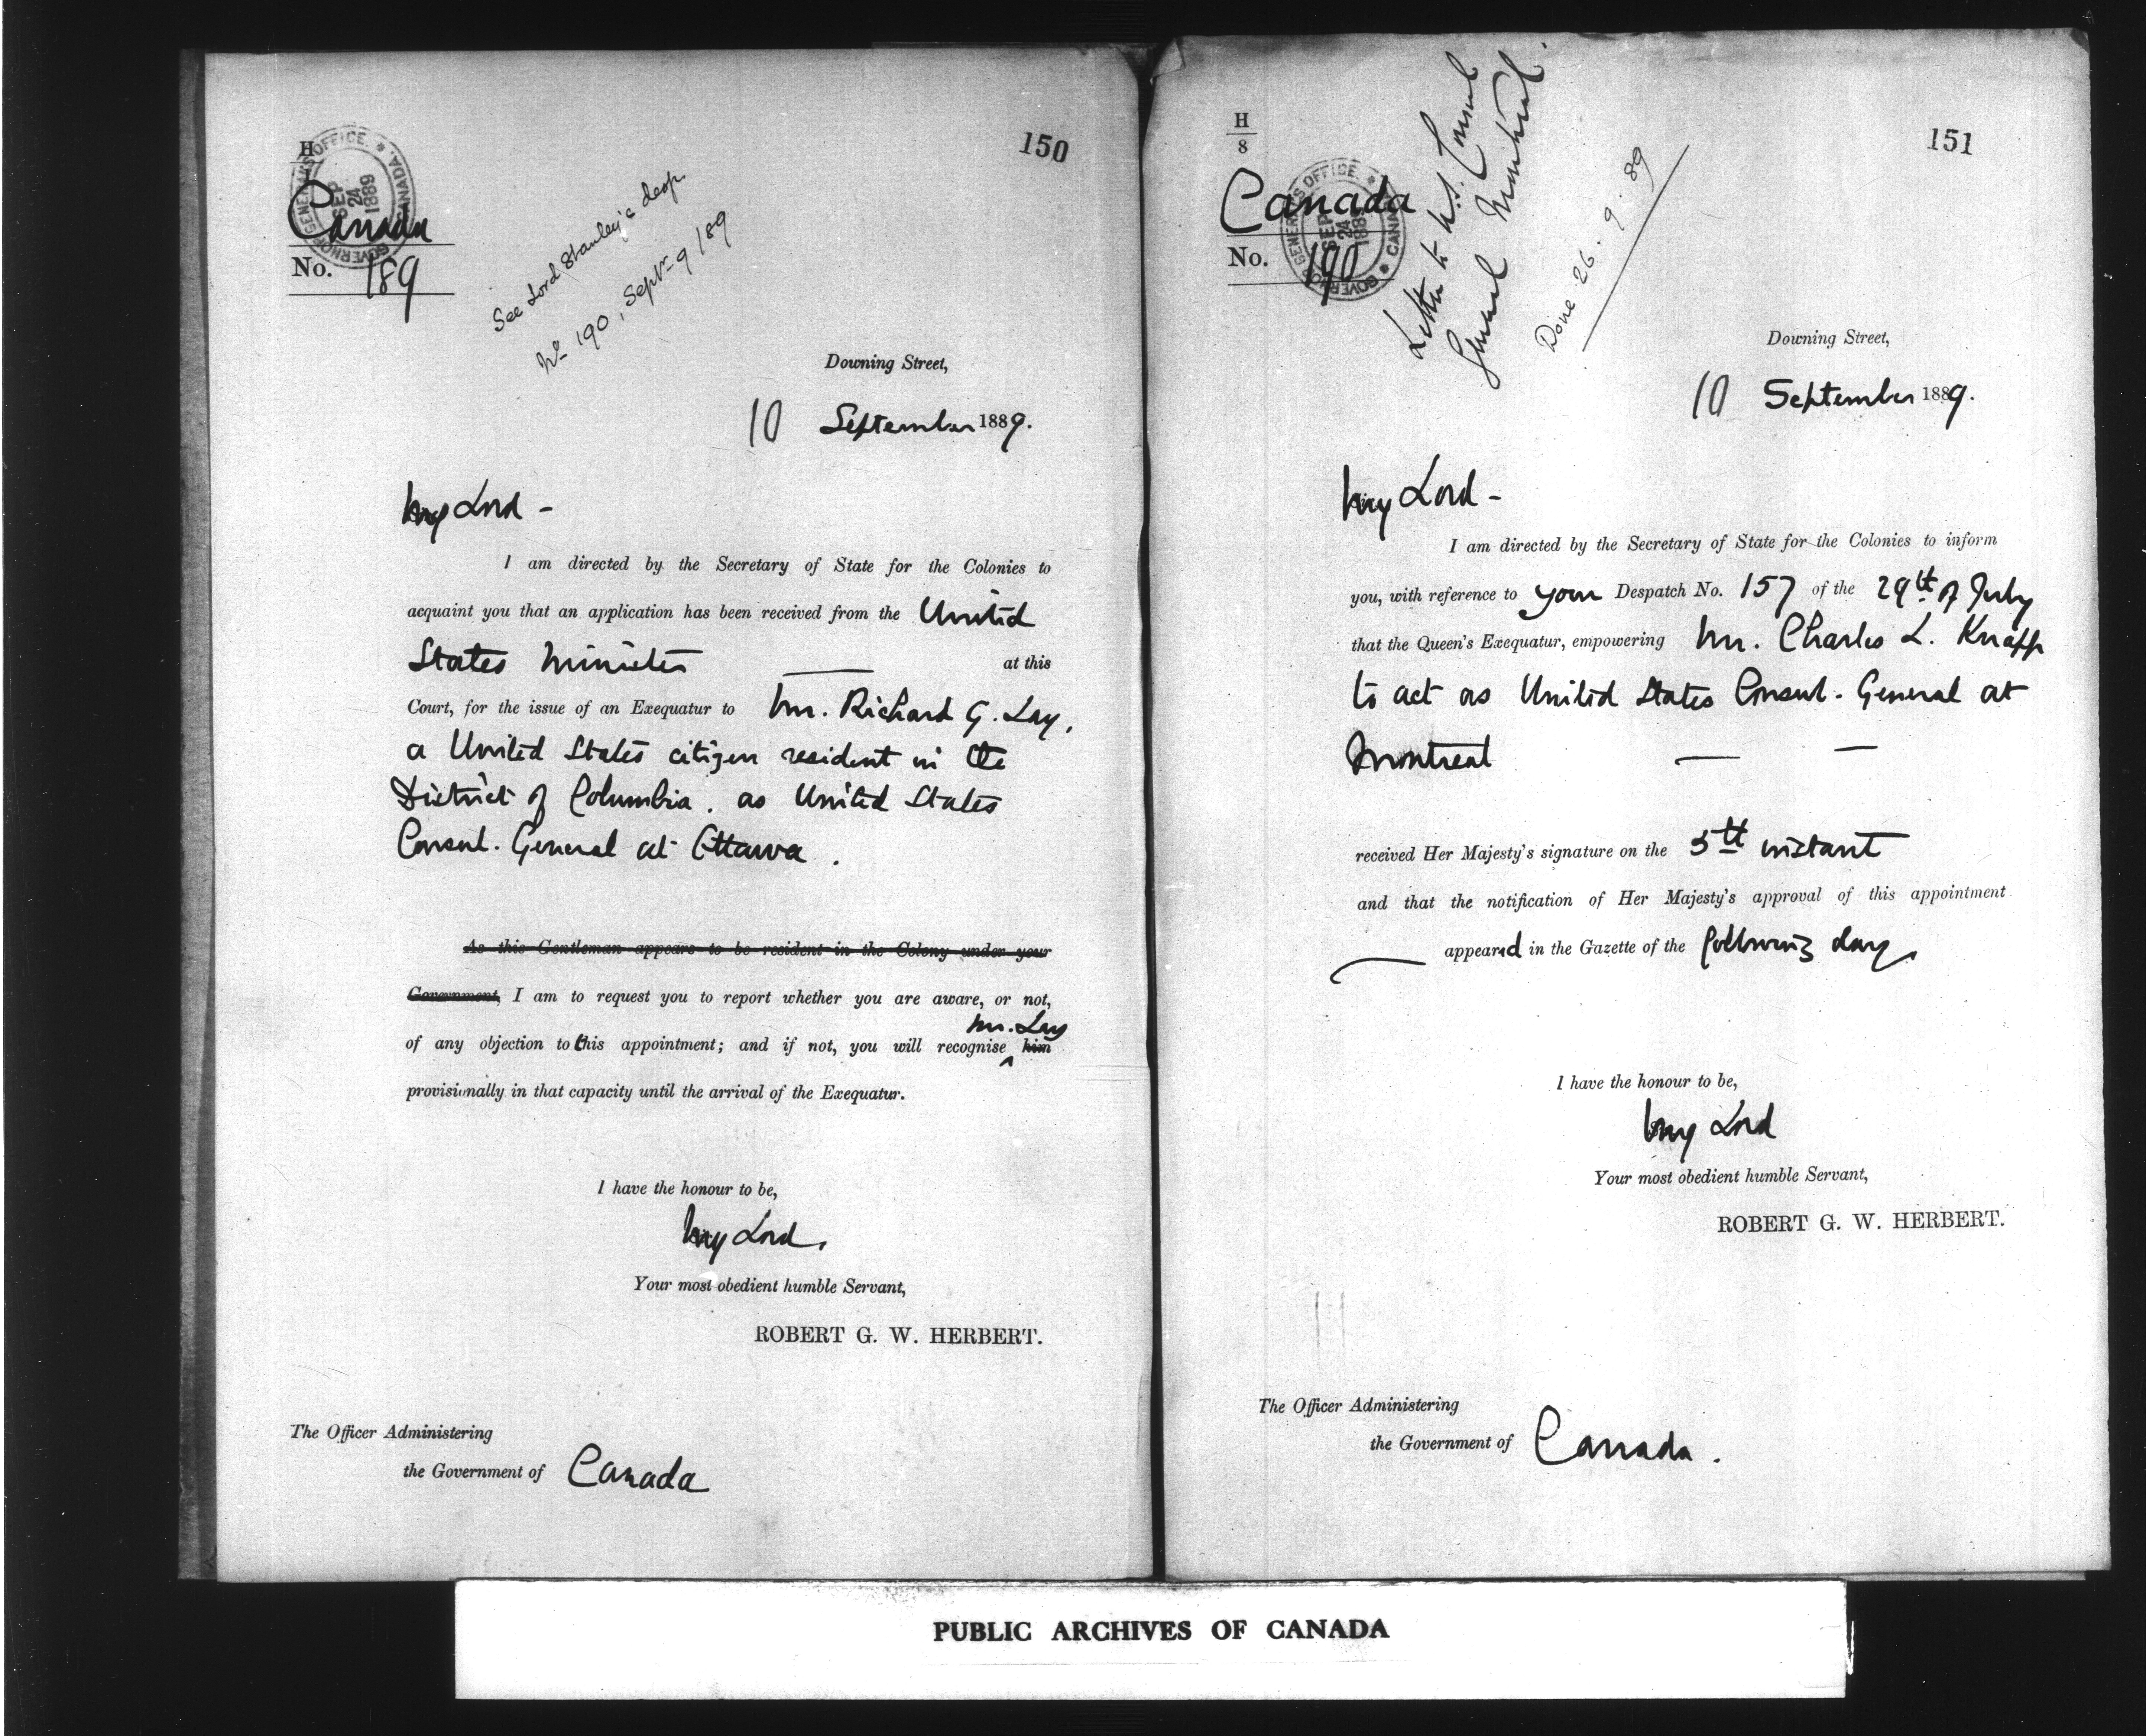 150
H
GOVERNOR GENERAL'S OFFICE. * CANADA. *
SEP
24
1889
Canada
No. 189
See Lord Stanley's desp
No 190, Septr 9/89
Downing Street,
10 September 1889.
My Lord -
I am directed by the Secretary of State for the Colonies to
acquaint you that an application has been received from the United
States Minister —— at this
Court, for the issue of an Exequatur to Mr. Richard G. Lay,
a United States citizen resident in the
District of Columbia. as United States
Consul-General at Ottawa.
As this Gentleman appears to be resident in the Colony under your
Government, I am to request you to report whether you are aware, or not,
Mr. Lay
of any objection to this appointment; and if not, you will recognise ^ him
provisionally in that capacity until the arrival of the Exequatur.
I have the honour to be,
My Lord,
Your most obedient humble Servant,
ROBERT G. W. HERBERT.
The Officer Administering
the Government of Canada
151
H
8
GOVERNOR GENERAL'S OFFICE. * CANADA *
SEP
24
188
Canada
No. 190
Letter to U.S. Consul
General Montreal.
Done 26.9.89
Downing Street,
10 September 1889.
My Lord -
I am directed by the Secretary of State for the Colonies to inform
you, with reference to your Despatch No. 157 of the 29th of July
that the Queen's Exequatur, empowering Mr. Charles L. Knapp
to act as United States Consul-General at
Montreal — —
received Her Majesty's signature on the 5th instant
and that the notification of Her Majesty's approval of this appointment
appeared in the Gazette of the following day.
I have the honour to be,
My Lord
Your most obedient humble Servant,
ROBERT G. W. HERBERT.
The Officer Administering
the Government of Canada.
PUBLIC ARCHIVES OF CANADA